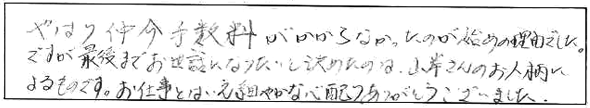 やはり仲介手数料がかからなかったのが始めの理由でした。
ですが最後までお世話になりたいと決めたのは、山岸さんのお人柄に
よるものです。お仕事とはいえ細やかな心配りありがとうございました。